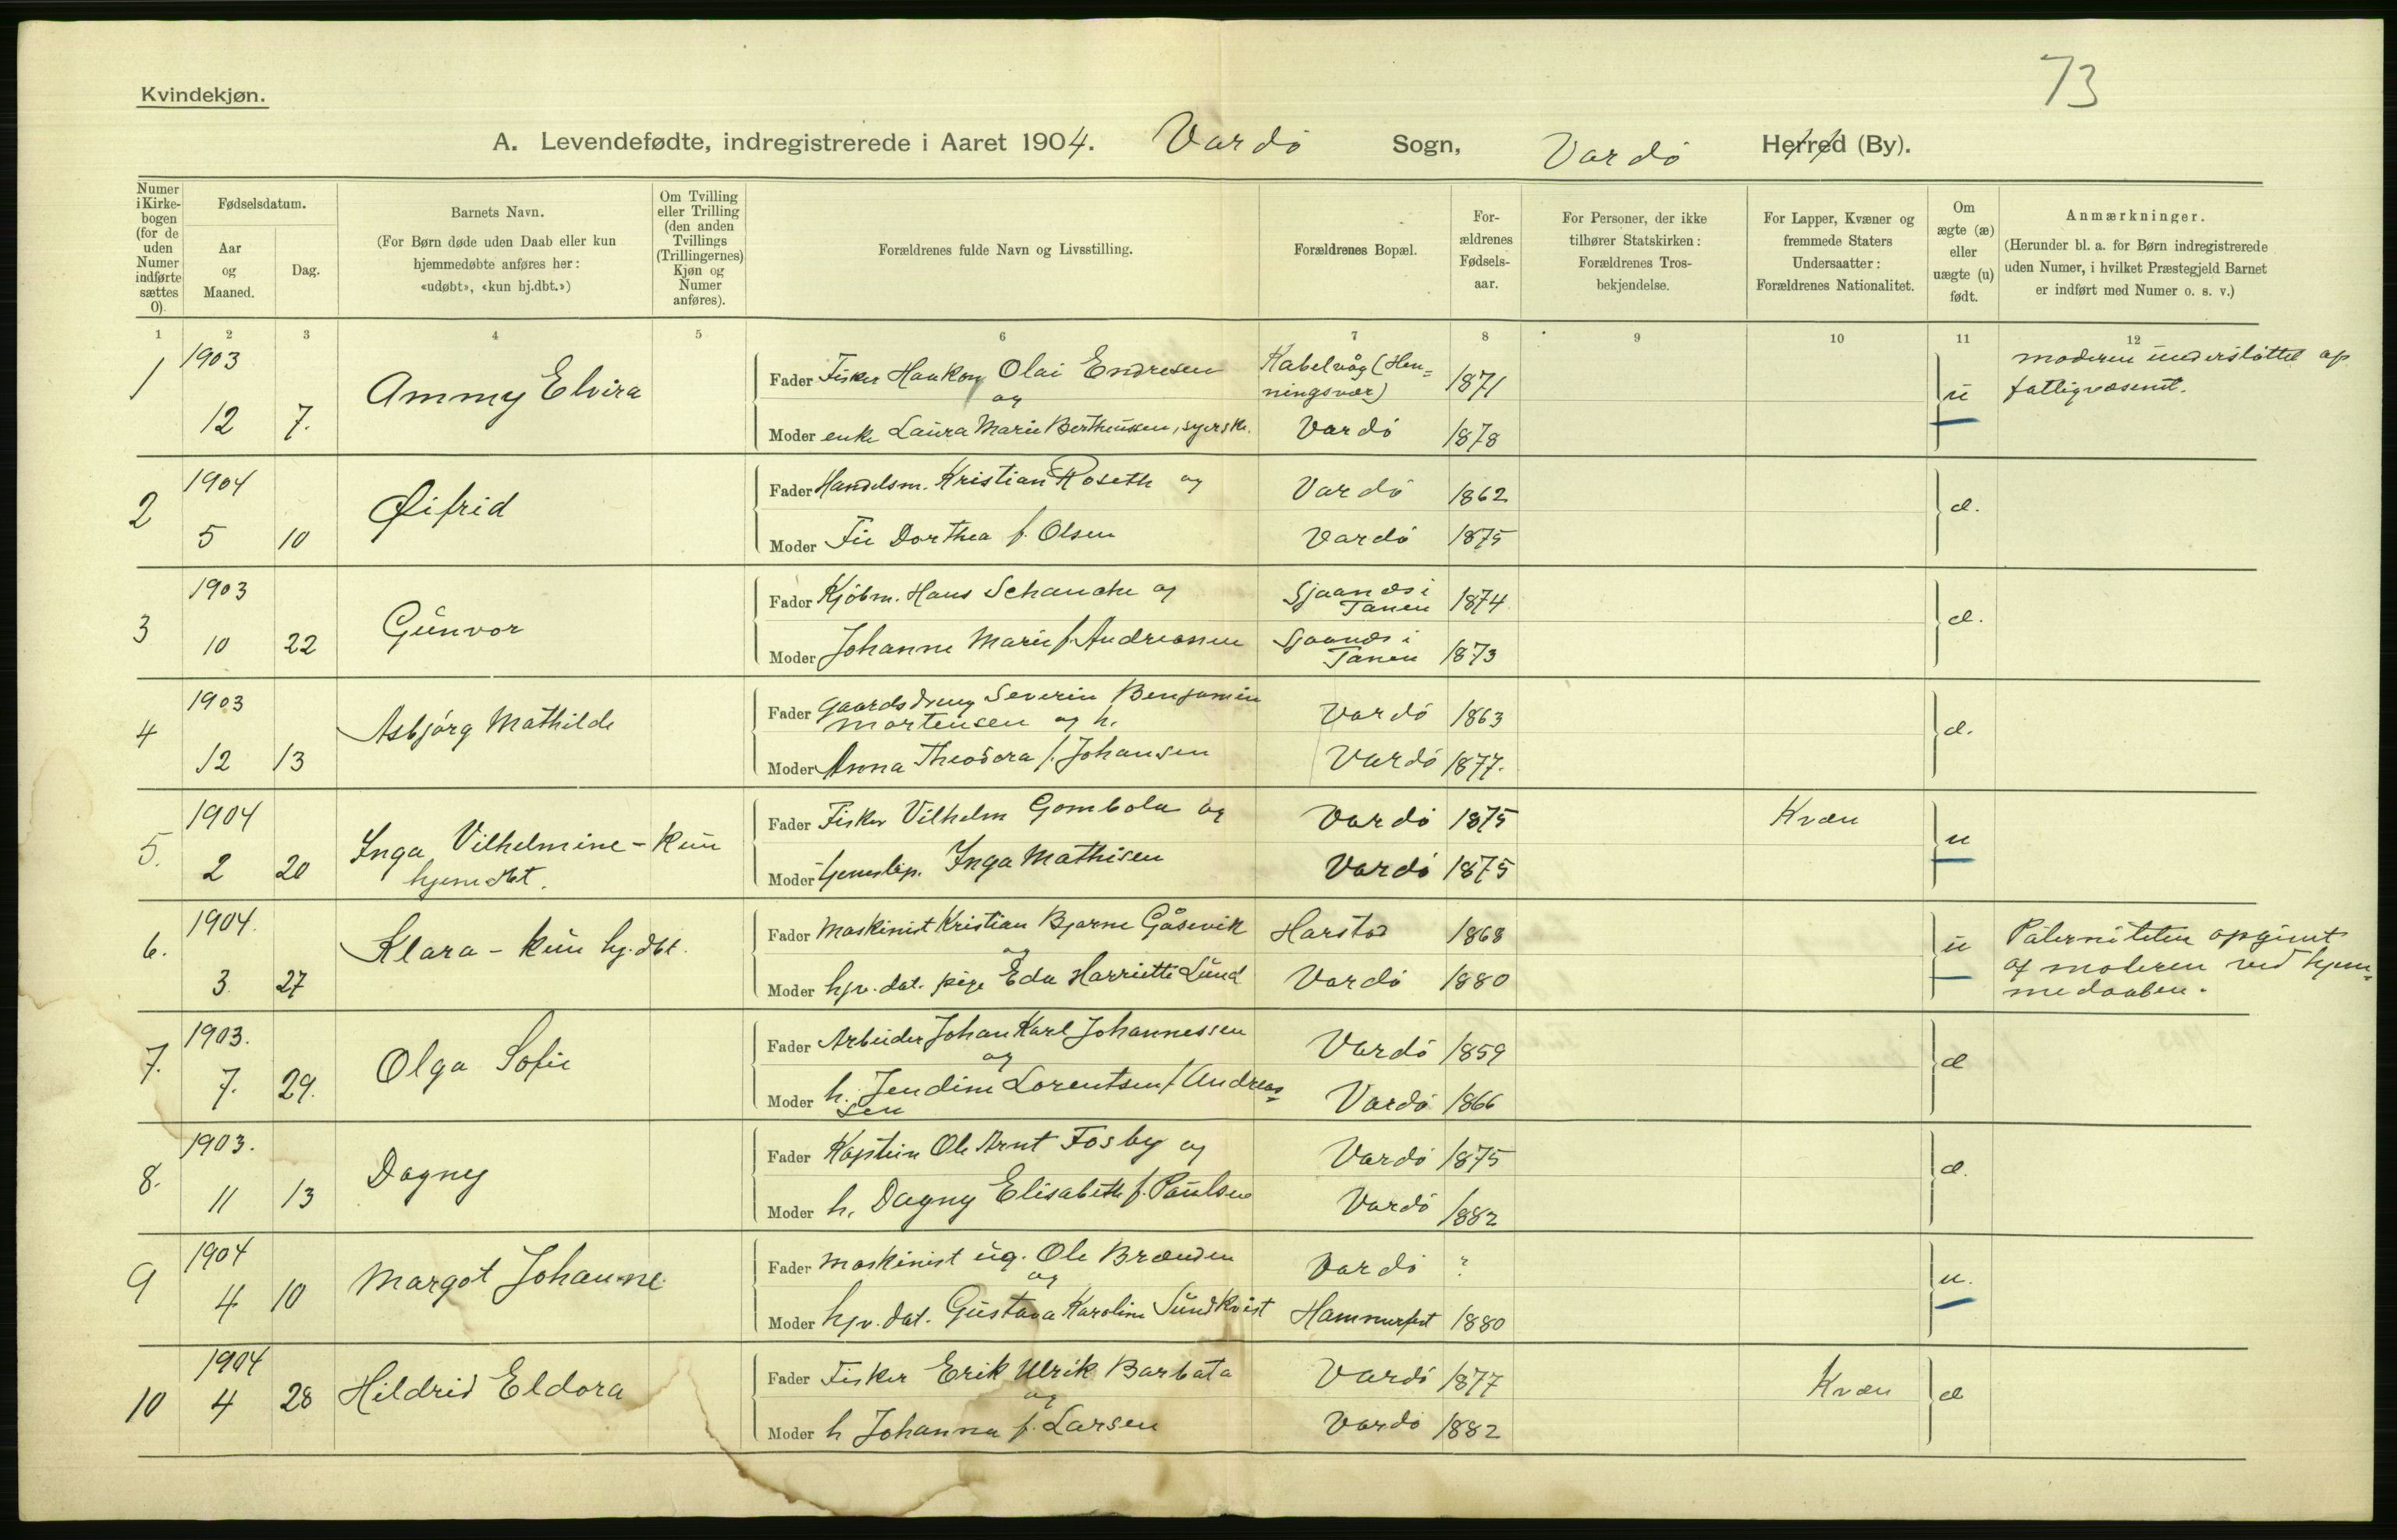 73
Kvindekjøn.
A. Levendefødte, indregistrerede i Aaret 1904. Vardö Sogn, Vardö Herred (By).
Numer i Kirke-bogen (for de uden Numer indførte sættes 0).
Fødselsdatum.
Aar og Maaned.
Dag.
Barnets Navn.
(For Børn døde uden Daab eller kun hjemmedøbte anføres her: «udøbt», «kun hj.dbt.»)
Om Tvilling eller Trilling (den anden Tvillings (Trillingernes) Kjøn og Numer anføres).
Forældrenes fulde Navn og Livsstilling.
Forældrenes Bopæl.
For-ældrenes Fødsels-aar.
For Personer, der ikke tilhører Statskirken: Forældrenes Tros-bekjendelse.
For Lapper, Kvæner og fremmede Staters Undersaatter: Forældrenes Nationalitet.
Om ægte (æ) eller uægte (u) født.
Anmærkninger.
(Herunder bl. a. for Børn indregistrerede uden Numer, i hvilket Præstegjeld Barnet er indført med Numer o. s. v.)
1 2 3 4 5 6 7 8 9 10 11 12
1 1903 12 7. Ammy Elvira
Fader Fisker Haakon Olai Endresen og Kabelvåg (Hen=ningsvær) 1871
Moder enke Laura Marie Bertheussen, syerske. Vardö 1878
u moderen understöttet af fattigvæsenet.
2 1904 5 10 Øifrid
Fader Handelsm. Kristian Roseth og Vardö 1862
Moder Fie Dorthea f. Olsen Vardö 1875
æ.
3 1903 10 22 Gunvor
Fader Kjöbm. Hans Schanche og Sjaanæs i Tanen 1874
Moder Johanne Marie f. Andreassen Sjaanæs i Tanen 1873
æ.
4 1903 12 13 Asbjörg Mathilde
Fader Gaardsdreng Severin Benjamin Mortensen og h. Vardö 1863
Moder Anna Theodora f. Johansen Vardö 1877.
æ.
5. 1904 2 20 Inga Vilhelmine - kun hjemdbt.
Fader Fisker Vilhelm Gombola og Vardö 1875 Kvæn
Moder tjenestep. Inga Mathisen Vardö 1875
u
6. 1904. 3. 27 Klara - kun hj. dbt.
Fader Maskinist Kristian Bjarne Gåsevik og Harstad 1868
Moder hjv. dat. pige Eda Harriette Lund Vardö 1880
u Paterniteten opgivet af moderen ved hjem=medaaben.
7. 1903. 7. 29. Olga Sofie
Fader Arbeider Johan Karl Johannessen og Vardö 1859
Moder h. Jendine Lorentsen f. Andreas=sen Vardö 1866
æ
8. 1903. 11 13 Dagny
Fader Kaptein Ole Arnt Fosby og Vardö 1875
Moder h. Dagny Elisabeth f. Paulsen Vardö 1882
æ.
9 1904 4 10 Margot Johanne
Fader Maskinist ug. Ole Brænden og Vardö ?
Moder hjv. dat. Gustava Karoline Sundkvist Hammerfest 1880
u.
10 1904 4 28 Hildrid Eldora
Fader Fisker Erik Ulrik Barbata og Vardö 1877 Kvæn
Moder h Johanna f. Larsen Vardö 1882
æ